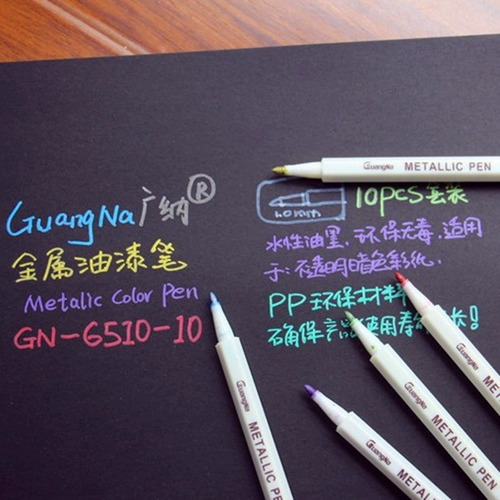 GuangNa广纳®
金属油漆笔
Metalic Color Pen
GN-6510-10
1.0mm
10pcs套装
水性油墨,环保无毒,适用
于:不透明暗色彩纸.
PP环保材料
确保产品使用寿命长!
GuangNa METALLIC PEN
GuangNa METALLIC PEN
GuangNa METALLIC PEN
GuangNa METALLIC PEN
GuangNa METALLIC PEN